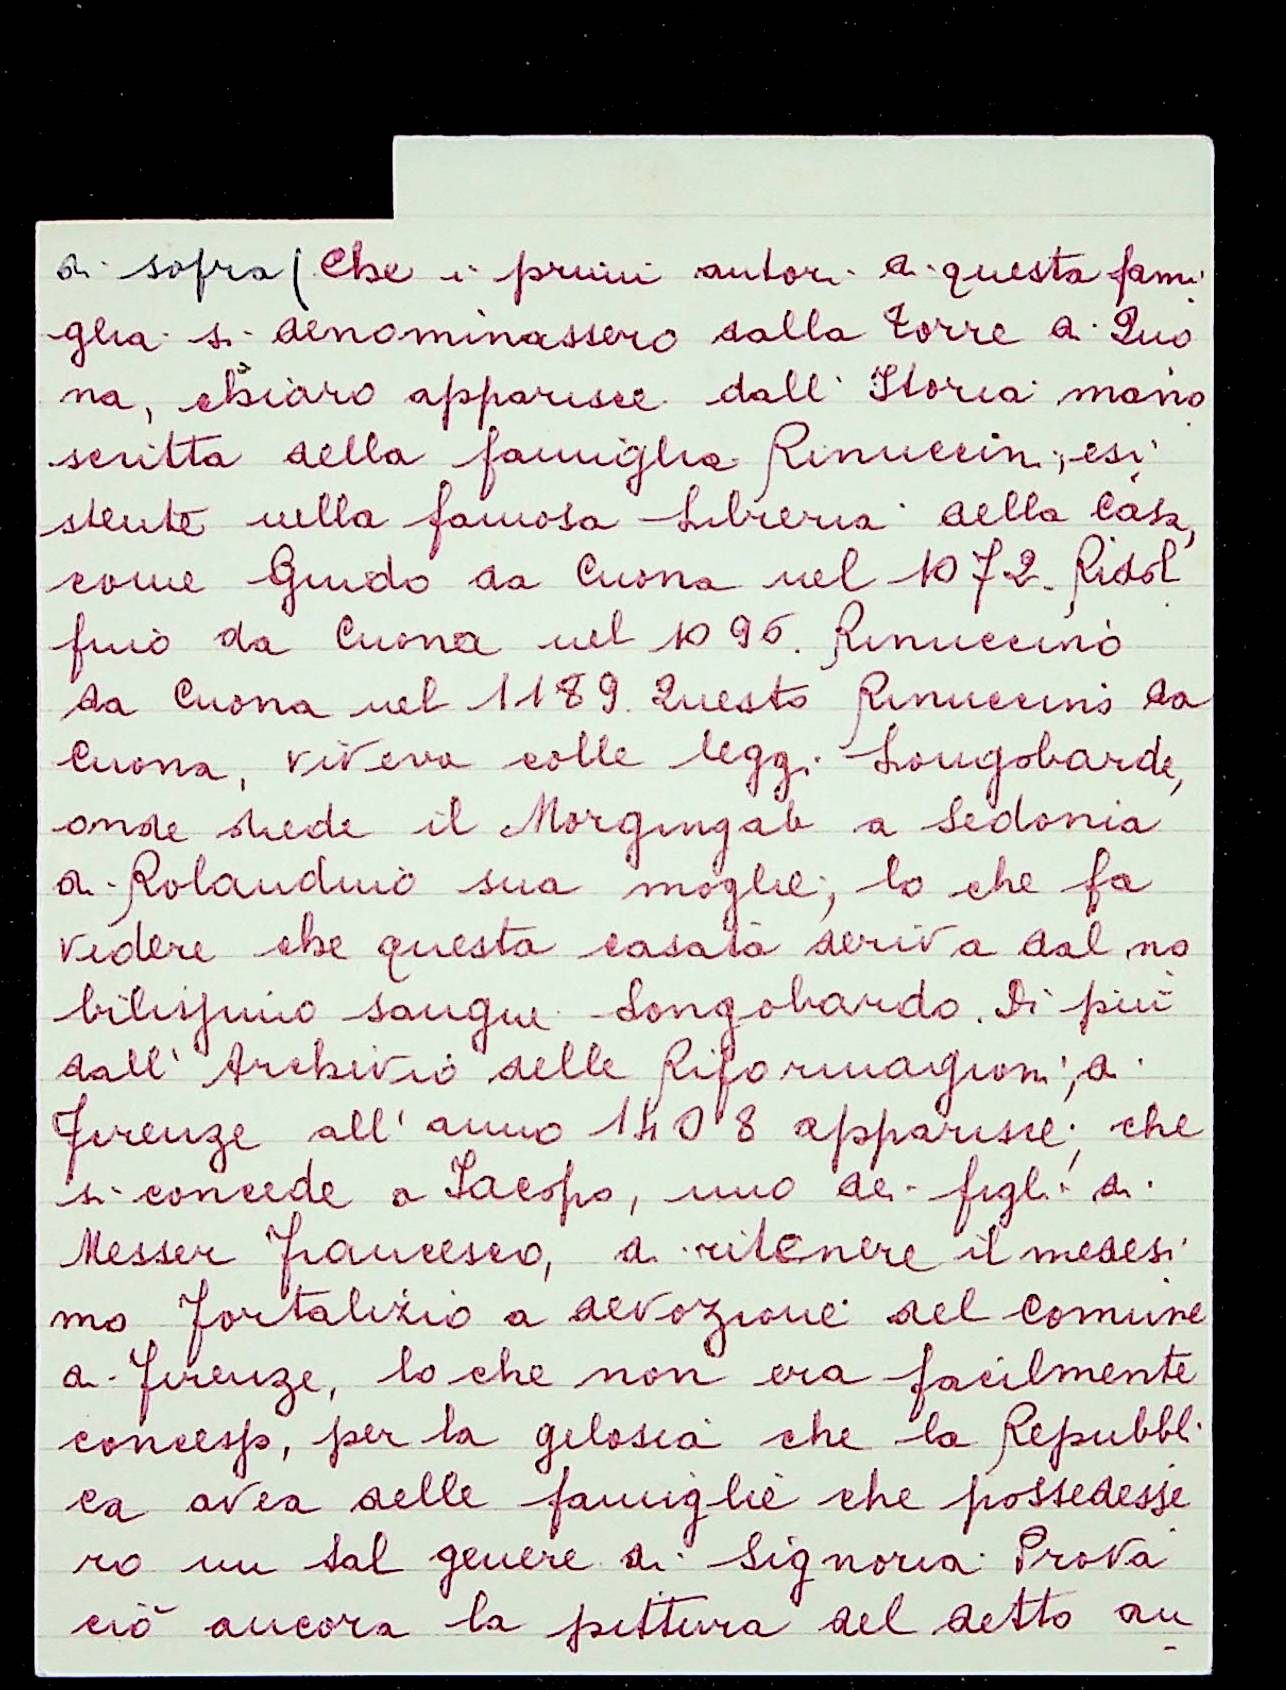 di sopra ( Che i primi autori di questa fami
glia si denominassero dalla Torre di Quo
na, chiaro apparisce dall' Istoria mano
scritta della famiglia Rinuccini, esi
stente nella famosa Libreria della Casa,
come Guido da Cuona nel 1072. Ridol
fino da Cuona nel 1096. Rinuccino
da Cuona nel 1189. Questo Rinuccino da
Cuona, viveva colle leggi Longobarde,
onde diede il Morgingab a Sedonia
di Rolandino sua moglie, lo che fa
vedere che questa casata deriva dal no
bilissimo sangue Longobardo. Di più
dall' Archivio delle Riformagioni, di
Firenze all' anno 1408 apparisce, che
si concede a Iacopo, uno dei figli di
Messer Francesco, di ritenere il medesi
mo Fortalizio a devozione del Comune
di Firenze, lo che non era facilmente
concesso, per la gelosia che la Repubbli
ca avea delle famiglie che possedesse
ro un tal genere di Signoria. Prova
ciò ancora la pittura del detto an